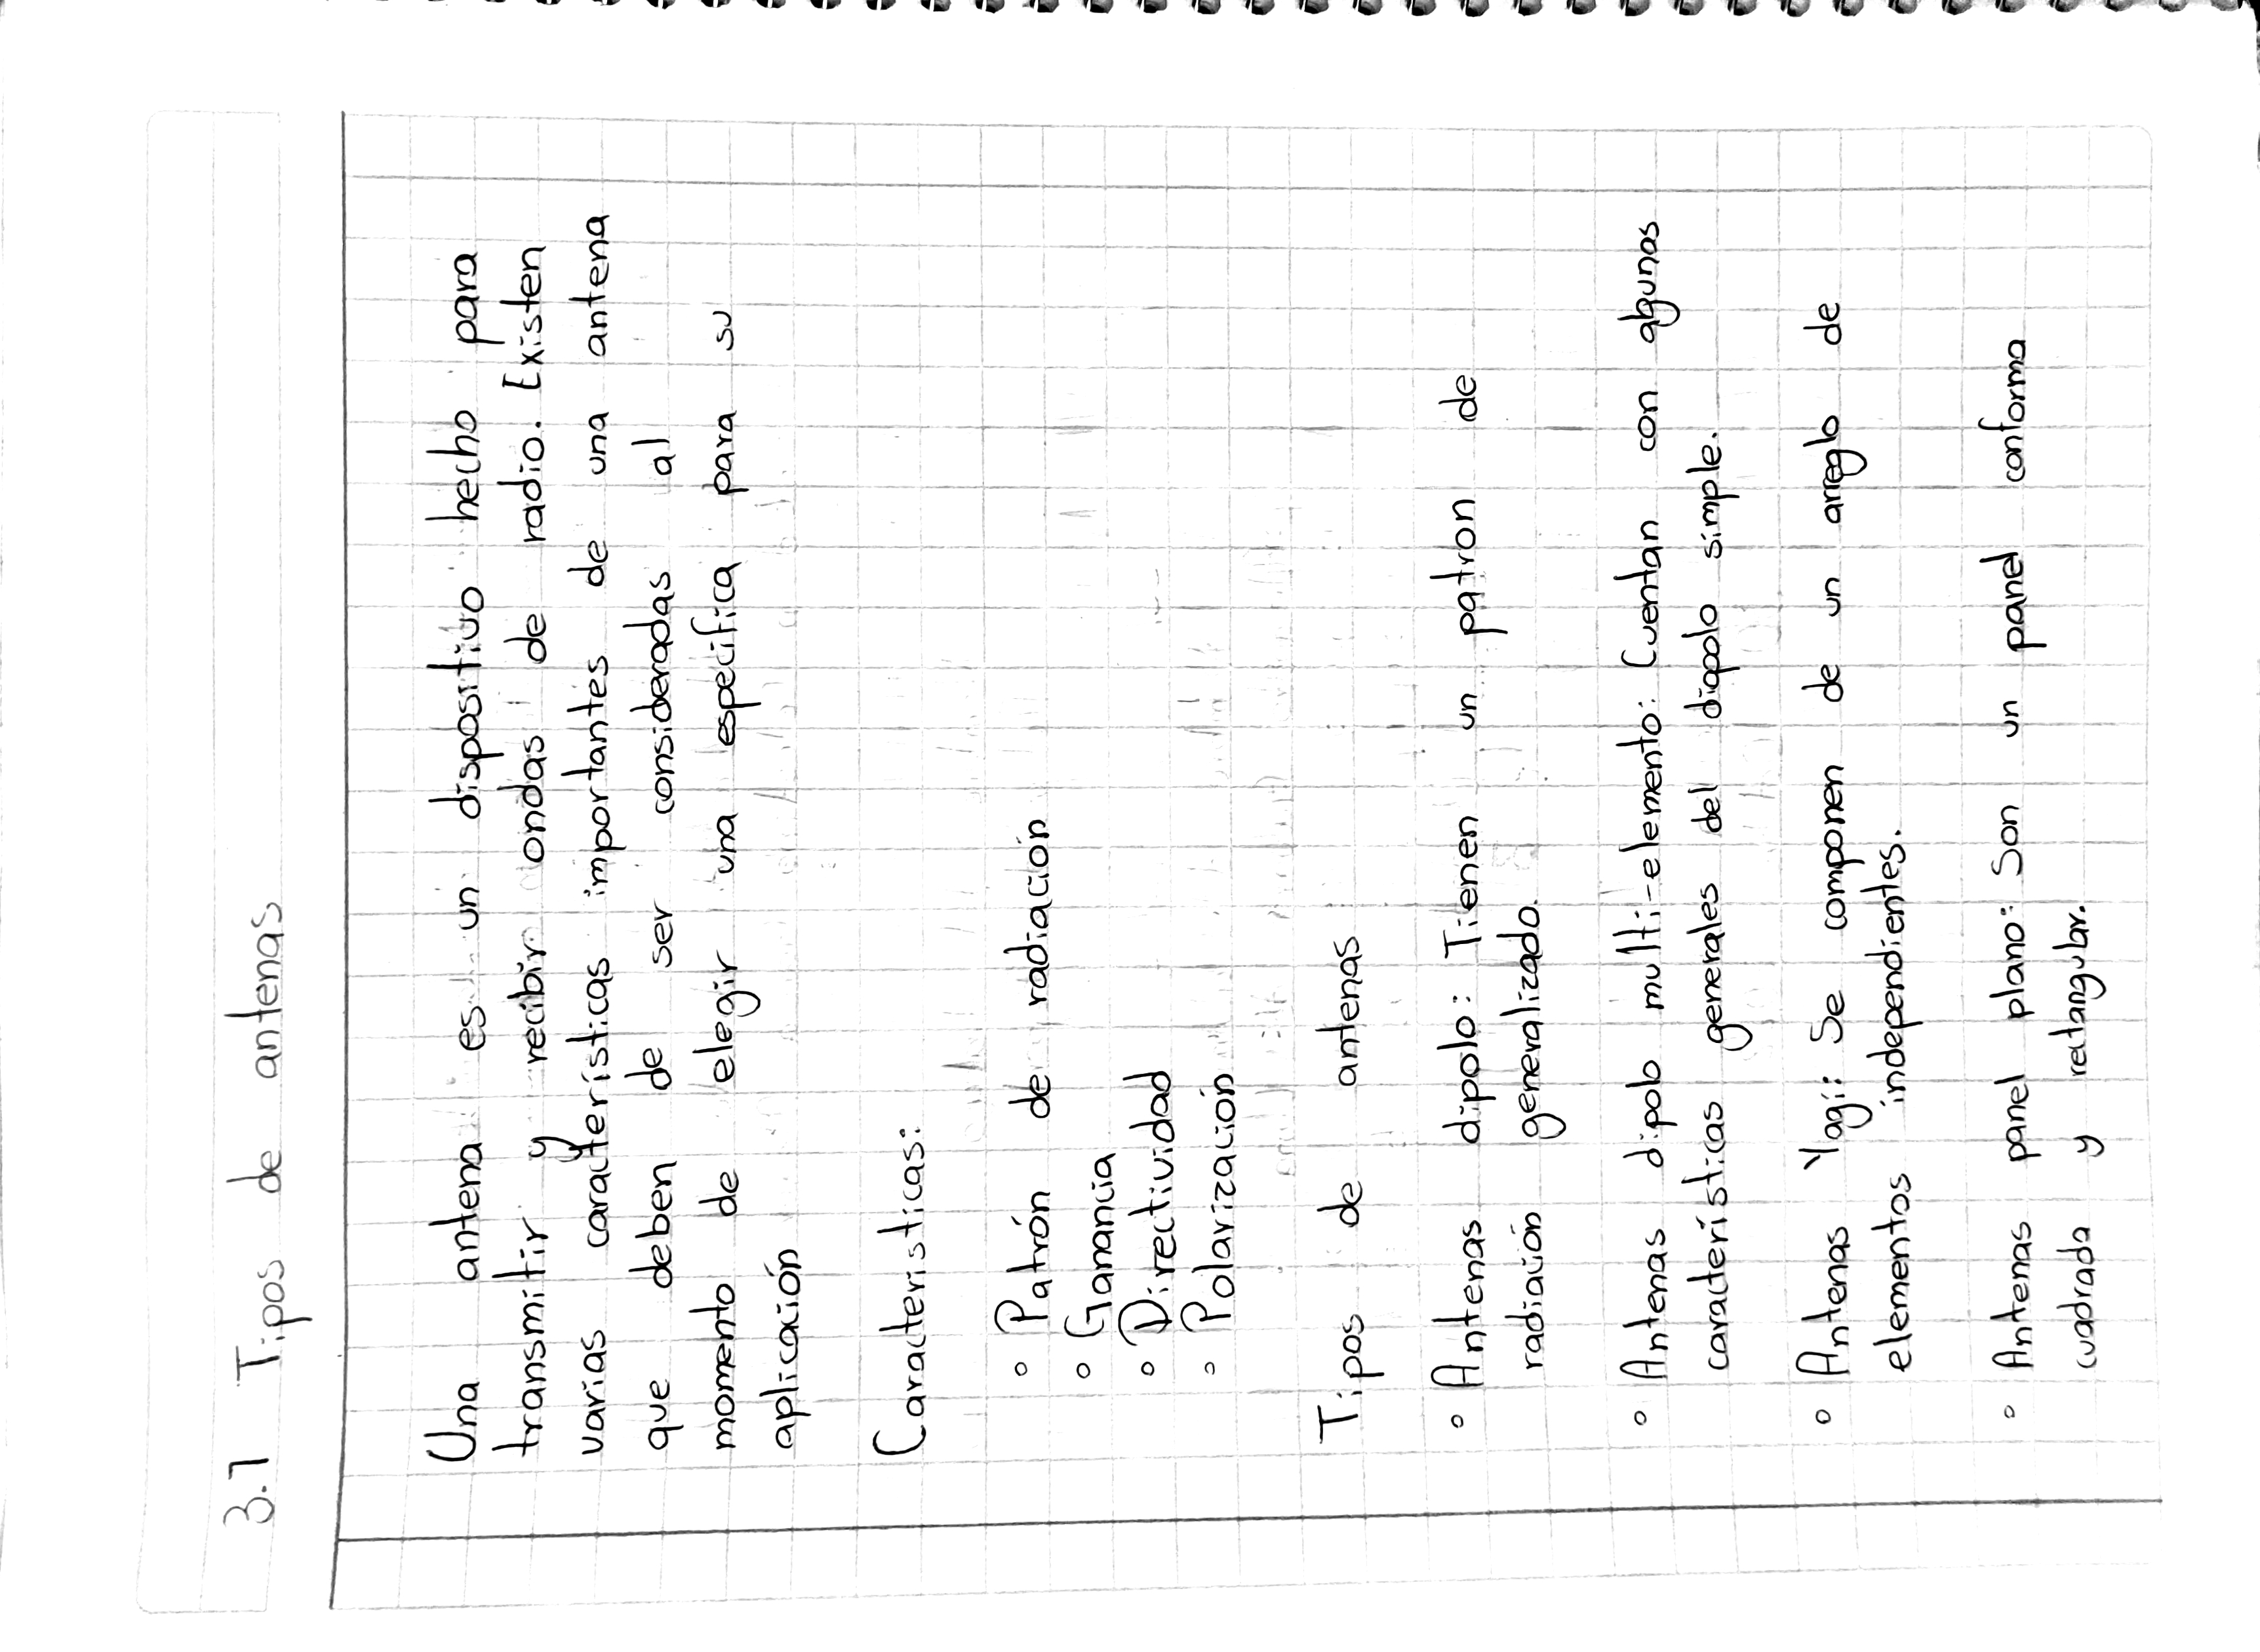 3.7 Tipos de antenas
Una antena es un dispositivo hecho para
transmitir y recibir ondas de radio. Existen
varias características importantes de una antena
que deben de ser consideradas al
momento de elegir una especifica para su
aplicación
Caracteristicas:
° Patrón de radiación
° Ganancia
° Directividad
° Polarización
Tipos de antenas
° Antenas dipolo: Tienen un patron de
radiación generalizado.
° Antenas dipolo multi-elemento: Cuentan con algunas
características generales del diapolo simple.
° Antenas Yagi: Se componen de un arreglo de
elementos independientes.
° Antenas panel plano: Son un panel conforma
cuadrada y rectangular.